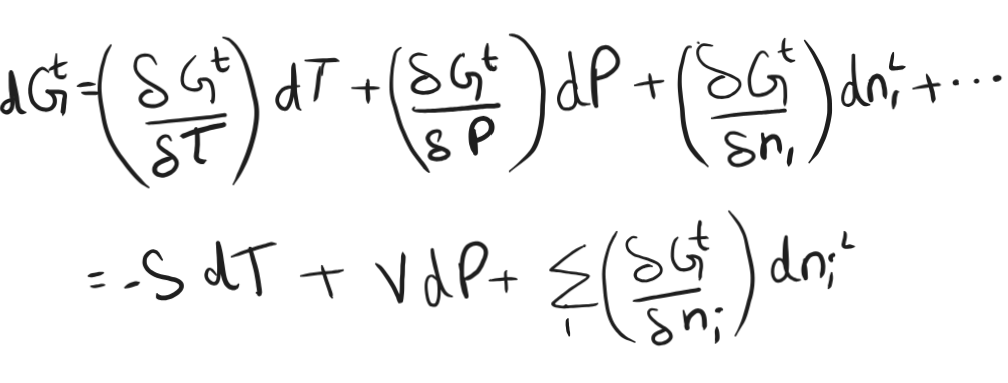 dG^t = (δG^t/δT) dT + (δG^t/δP) dP + (δG^t/δn₁) dn₁^L + ⋯
= -S dT + V dP + Σ_i (δG^t/δn_i) dn_i^L